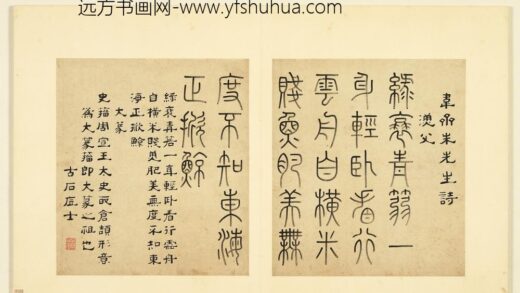 远方书画网-www.yfshuhua.com
韋齋朱先生詩
漁父
綠蓑青箬一
身輕臥看行
雲舟自橫米
賤魚肥美無
度不知東海
正掀鯨
綠蓑青箬一身輕臥看行雲舟
自橫米賤魚肥美無度不知東
海正掀鯨
大篆
史籀周宣王太史取倉頡形意
為大篆籀即大篆之祖也
古石居士